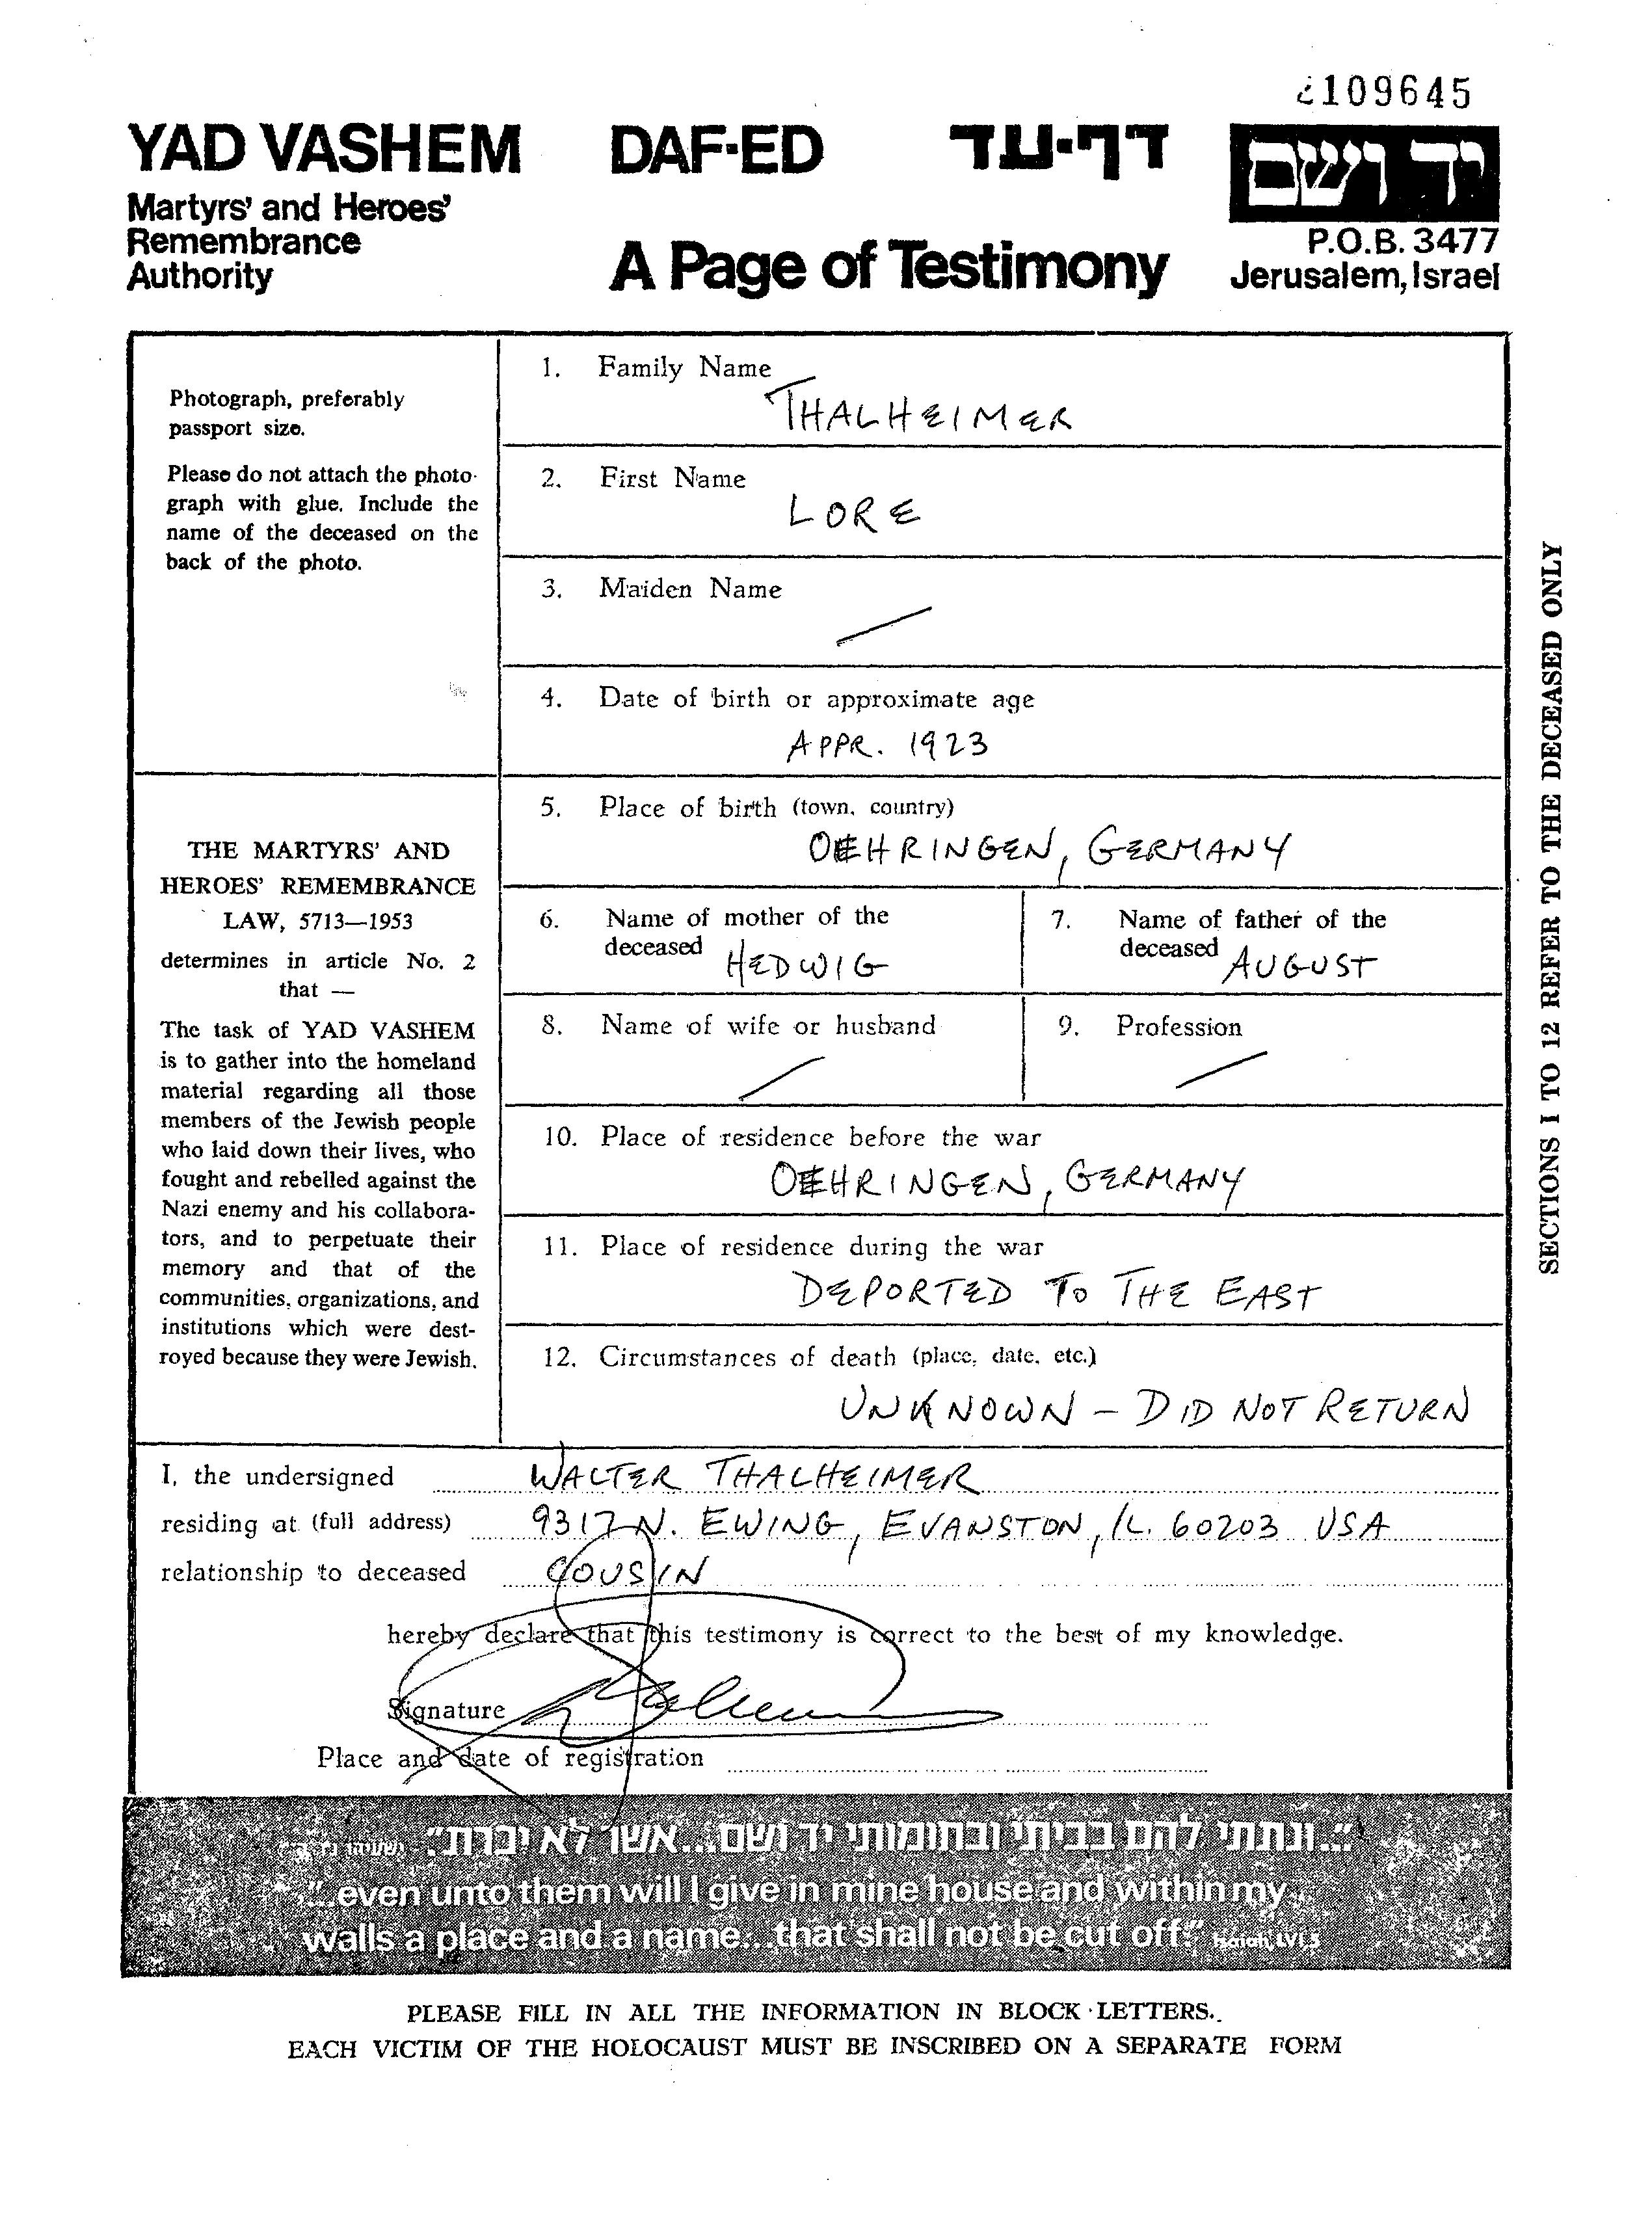 109645
YAD VASHEM DAF-ED דף-עד יד ושם
Martyrs' and Heroes'
Remembrance
Authority
A Page of Testimony
P.O.B. 3477
Jerusalem, Israel
Photograph, preferably
passport size.
Please do not attach the photo-
graph with glue. Include the
name of the deceased on the
back of the photo.
THE MARTYRS' AND
HEROES' REMEMBRANCE
LAW, 5713—1953
determines in article No. 2
that —
The task of YAD VASHEM
is to gather into the homeland
material regarding all those
members of the Jewish people
who laid down their lives, who
fought and rebelled against the
Nazi enemy and his collabora-
tors, and to perpetuate their
memory and that of the
communities, organizations, and
institutions which were dest-
royed because they were Jewish.
1. Family Name
THALHEIMER
2. First Name
LORE
3. Maiden Name
/
4. Date of birth or approximate age
APPR. 1923
5. Place of birth (town, country)
OEHRINGEN, GERMANY
6. Name of mother of the
deceased HEDWIG
7. Name of father of the
deceased AUGUST
8. Name of wife or husband
/
9. Profession
/
10. Place of residence before the war
OEHRINGEN, GERMANY
11. Place of residence during the war
DEPORTED TO THE EAST
12. Circumstances of death (place, date, etc.)
UNKNOWN — DID NOT RETURN
SECTIONS 1 TO 12 REFER TO THE DECEASED ONLY
I, the undersigned WALTER THALHEIMER
residing at (full address) 9317 N. EWING, EVANSTON, IL. 60203 USA
relationship to deceased COUSIN
hereby declare that this testimony is correct to the best of my knowledge.
Signature
Place and date of registration
"...ונתתי להם בביתי ובחומותי יד ושם...אשר לא יכרת"
"...even unto them will I give in mine house and within my
walls a place and a name...that shall not be cut off." Isaiah, LVI.5
PLEASE FILL IN ALL THE INFORMATION IN BLOCK LETTERS.
EACH VICTIM OF THE HOLOCAUST MUST BE INSCRIBED ON A SEPARATE FORM